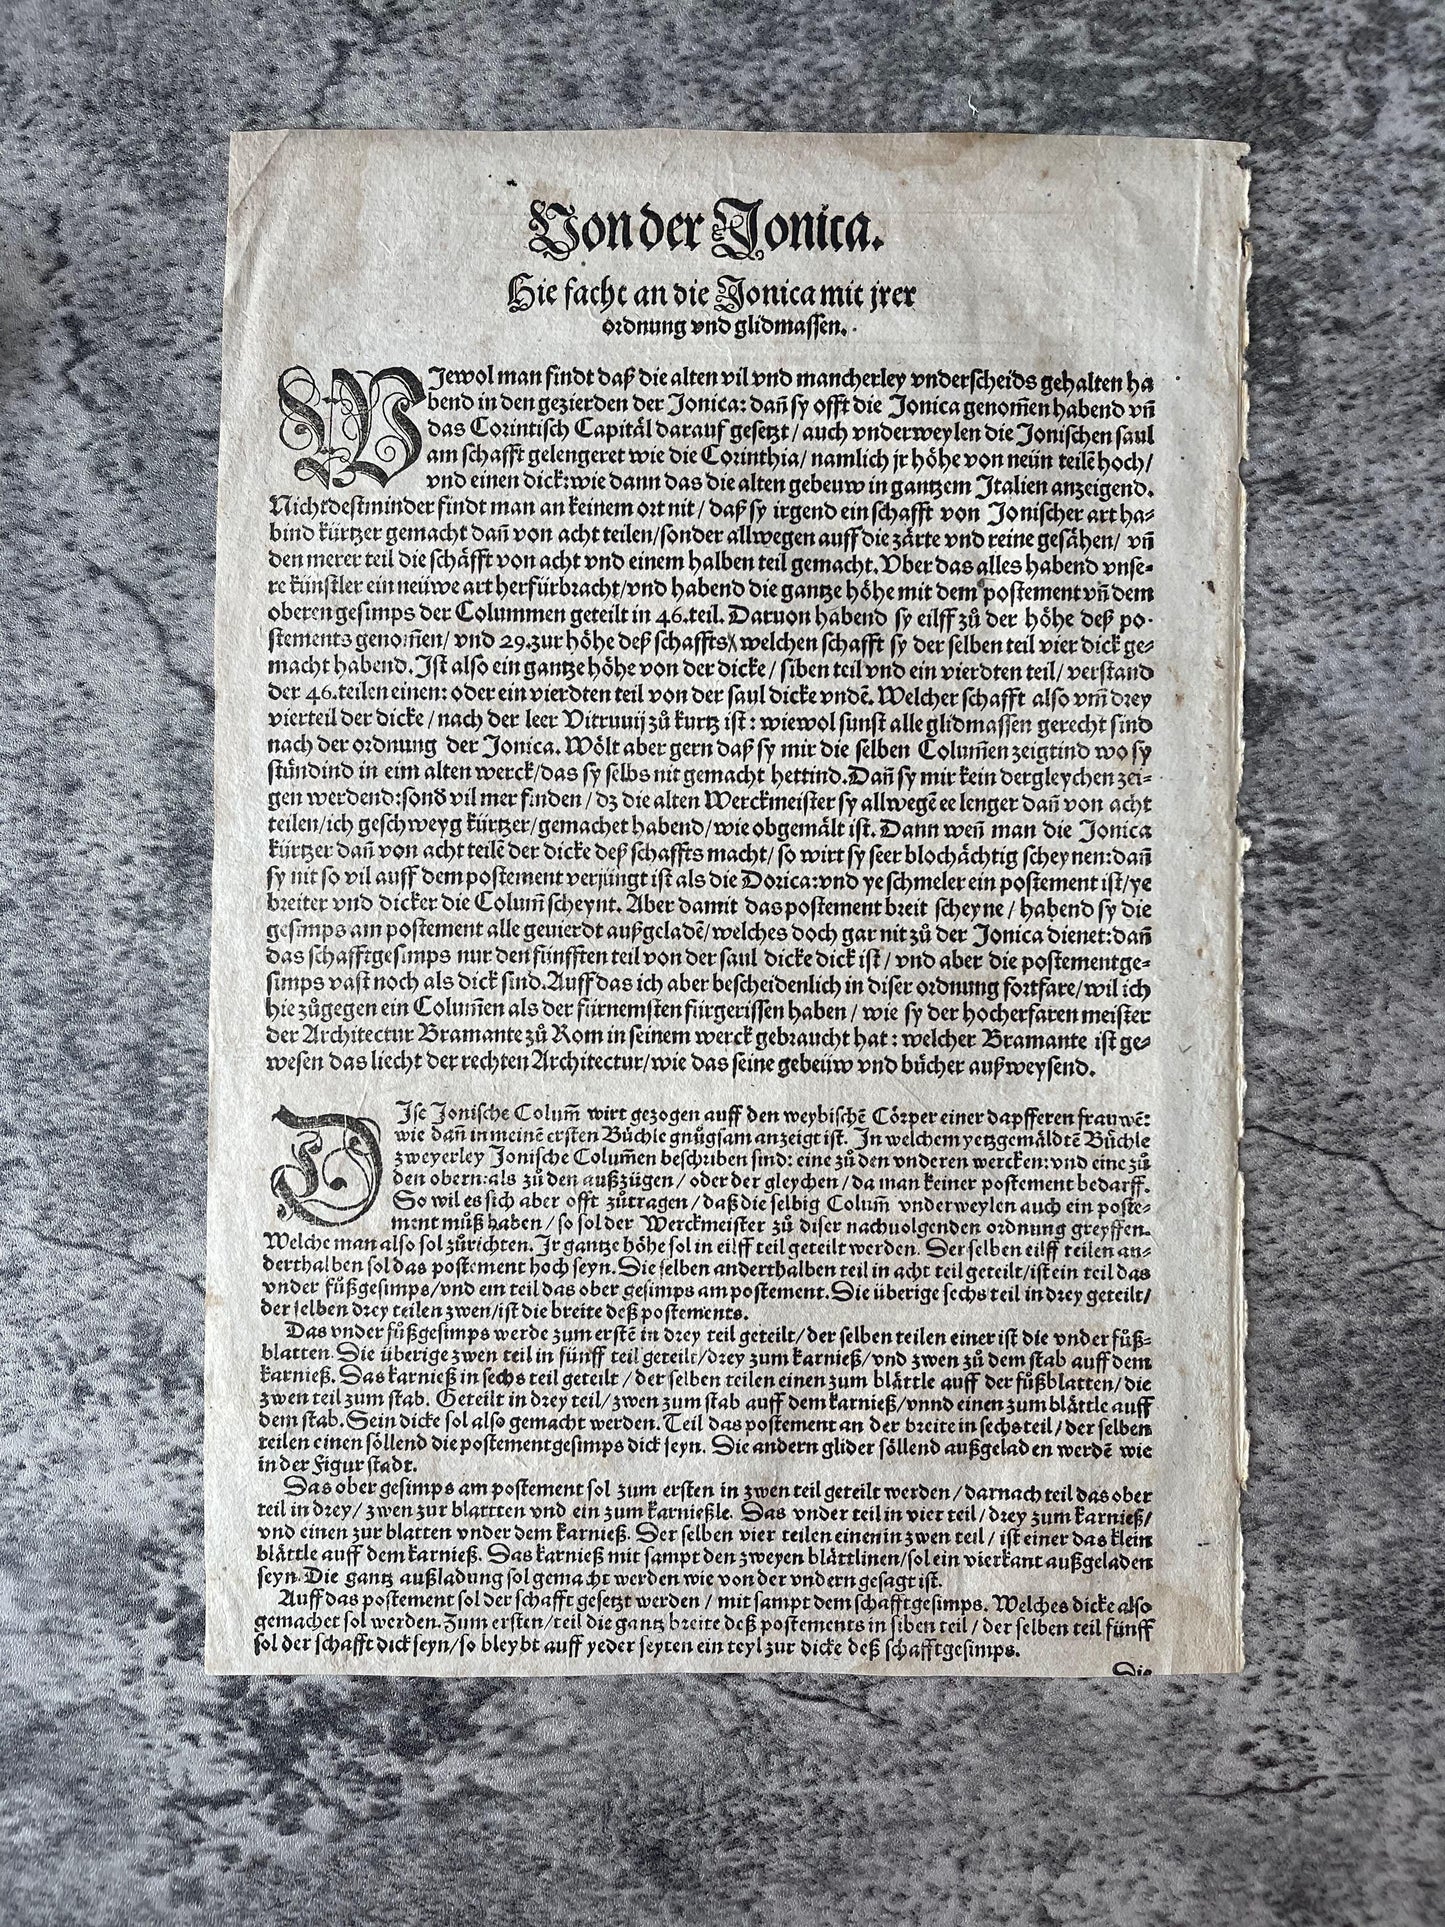 Von der Jonica.
Hie facht an die Jonica mit jrer
ordnung vnd glidmassen.
WJewol man findt daß die alten vil vnd mancherley vnderscheids gehalten ha
bend in den gezierden der Jonica: dañ sy offt die Jonica genom̄en habend vñ
das Corintisch Capitäl darauf gesetzt / auch vnderweylen die Jonischen saul
am schafft gelengeret wie die Corinthia / namlich jr höhe von neün teilē hoch /
vnd einen dick: wie dann das die alten gebeuw in gantzem Jtalien anzeigend.
Nichtdestminder findt man an keinem ort nit / daß sy irgend ein schafft von Jonischer art ha-
bind kürtzer gemacht dañ von acht teilen / sonder allwegen auff die zärte vnd reine gesähen / vñ
den merer teil die schäfft von acht vnd einem halben teil gemacht. Vber das alles habend vnse-
re künstler ein neüwe art herfürbracht / vnd habend die gantze höhe mit dem postement vñ dem
oberen gesimps der Colummen geteilt in 46. teil. Daruon habend sy eilff zů der höhe deß po-
stements genom̄en / vnd 29. zur höhe deß schaffts / welchen schafft sy der selben teil vier dick ge-
macht habend. Jst also ein gantze höhe von der dicke / siben teil vnd ein vierdten teil / verstand
der 46. teilen einen: oder ein vierdten teil von der saul dicke vndē. Welcher schafft also vm̄ drey
vierteil der dicke / nach der leer Vitruuij zů kurtz ist: wiewol sunst alle glidmassen gerecht sind
nach der ordnung der Jonica. Wölt aber gern daß sy mir die selben Colum̄en zeigtind wo sy
stündind in eim alten werck / das sy selbs nit gemacht hettind. Dañ sy mir kein dergleychen zei-
gen werdend: sond vil mer finden / dz die alten Werckmeister sy allwegē ee lenger dañ von acht
teilen / ich geschweyg kürtzer / gemachet habend / wie obgemält ist. Dann weñ man die Jonica
kürtzer dañ von acht teilē der dicke deß schaffts macht / so wirt sy seer blochächtig scheynen: dañ
sy nit so vil auff dem postement verjüngt ist als die Dorica: vnd ye schmeler ein postement ist / ye
breiter vnd dicker die Colum̄ scheynt. Aber damit das postement breit scheyne / habend sy die
gesimps am postement alle gevierdt außgeladē / welches doch gar nit zů der Jonica dienet: dañ
das schafftgesimps nur den fünfften teil von der saul dicke dick ist / vnd aber die postementge-
simps vast noch als dick sind. Auff das ich aber bescheidenlich in diser ordnung fortfare / wil ich
hie zůgegen ein Colum̄en als der fürnemsten fürgerissen haben / wie sy der hocherfaren meister
der Architectur Bramante zů Rom in seinem werck gebraucht hat: welcher Bramante ist ge-
wesen das liecht der rechten Architectur / wie das seine gebeüw vnd bücher außweysend.
DJse Jonische Colum̄ wirt gezogen auff den weybischē Cörper einer dapfferen frauwē:
wie dañ in meinē ersten Büchle gnůgsam anzeigt ist. Jn welchem yetzgemäldtē Büchle
zweyerley Jonische Colum̄en beschriben sind: eine zů den vnderen wercken: vnd eine zů
den obern: als zů den außzügen / oder der gleychen / da man keiner postement bedarff.
So wil es sich aber offt zůtragen / daß die selbig Colum̄ vnderweylen auch ein poste-
ment můß haben / so sol der Werckmeister zů diser nachuolgenden ordnung greyffen.
Welche man also sol zůrichten. Jr gantze höhe sol in eilff teil geteilt werden. Der selben eilff teilen an-
derthalben sol das postement hoch seyn. Die selben anderthalben teil in acht teil geteilt / ist ein teil das
vnder fůßgesimps / vnd ein teil das ober gesimps am postement. Die überige sechs teil in drey geteilt /
der selben drey teilen zwen / ist die breite deß postements.
Das vnder fůßgesimps werde zum erstē in drey teil geteilt / der selben teilen einer ist die vnder fůß-
blatten. Die überige zwen teil in fünff teil geteilt / drey zum karnieß / vnd zwen zů dem stab auff dem
karnieß. Das karnieß in sechs teil geteilt / der selben teilen einen zum blättle auff der fůßblatten / die
zwen teil zum stab. Geteilt in drey teil / zwen zum stab auff dem karnieß / vnnd einen zum blättle auff
dem stab. Sein dicke sol also gemacht werden. Teil das postement an der breite in sechs teil / der selben
teilen einen söllend die postementgesimps dick seyn. Die andern glider söllend außgeladen werdē wie
in der Figur stadt.
Das ober gesimps am postement sol zum ersten in zwen teil geteilt werden / darnach teil das ober
teil in drey / zwen zur blattten vnd ein zum karnießle. Das vnder teil in vier teil / drey zum karnieß /
vnd einen zur blatten vnder dem karnieß. Der selben vier teilen einen in zwen teil / ist einer das klein
blättle auff dem karnieß. Das karnieß mit sampt den zweyen blättlinen / sol ein vierkant außgeladen
seyn. Die gantz außladung sol gemacht werden wie von der vndern gesagt ist.
Auff das postement sol der schafft gesetzt werden / mit sampt dem schafftgesimps. Welches dicke also
gemachet sol werden. Zum ersten / teil die gantz breite deß postements in siben teil / der selben teil fünff
sol der schafft dick seyn / so bleybt auff yeder seyten ein teyl zur dicke deß schafftgesimps.
Die